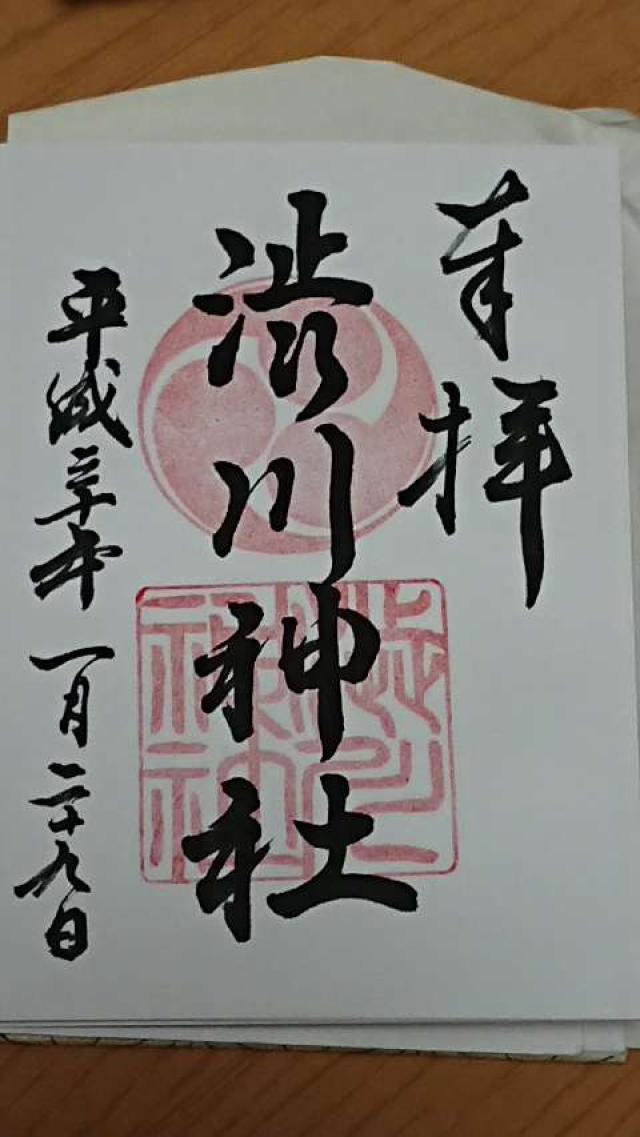 奉拝
渋川神社
平成三十年一月二十九日
渋川神社